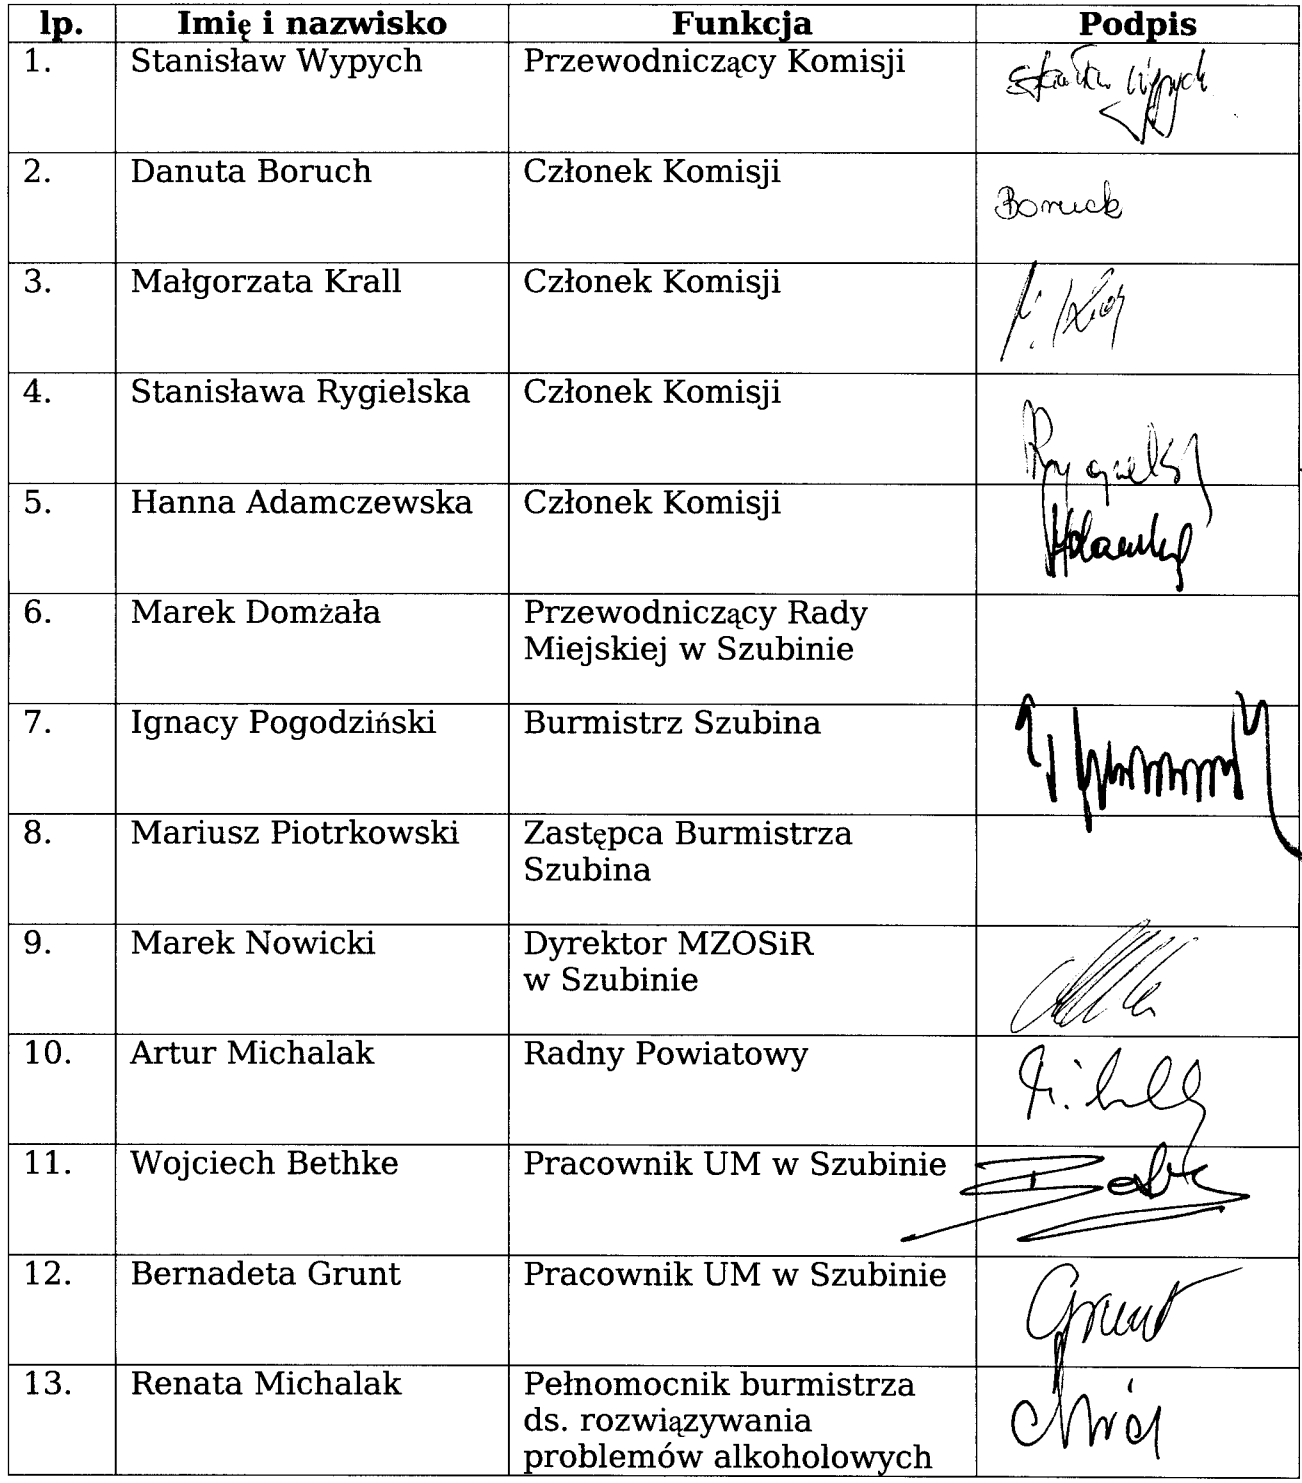 lp. Imię i nazwisko Funkcja Podpis
1. Stanisław Wypych Przewodniczący Komisji
2. Danuta Boruch Członek Komisji Boruch
3. Małgorzata Krall Członek Komisji
4. Stanisława Rygielska Członek Komisji
5. Hanna Adamczewska Członek Komisji
6. Marek Domżała Przewodniczący Rady
Miejskiej w Szubinie
7. Ignacy Pogodziński Burmistrz Szubina
8. Mariusz Piotrkowski Zastępca Burmistrza
Szubina
9. Marek Nowicki Dyrektor MZOSiR
w Szubinie
10. Artur Michalak Radny Powiatowy
11. Wojciech Bethke Pracownik UM w Szubinie
12. Bernadeta Grunt Pracownik UM w Szubinie Grunt
13. Renata Michalak Pełnomocnik burmistrza
ds. rozwiązywania
problemów alkoholowych